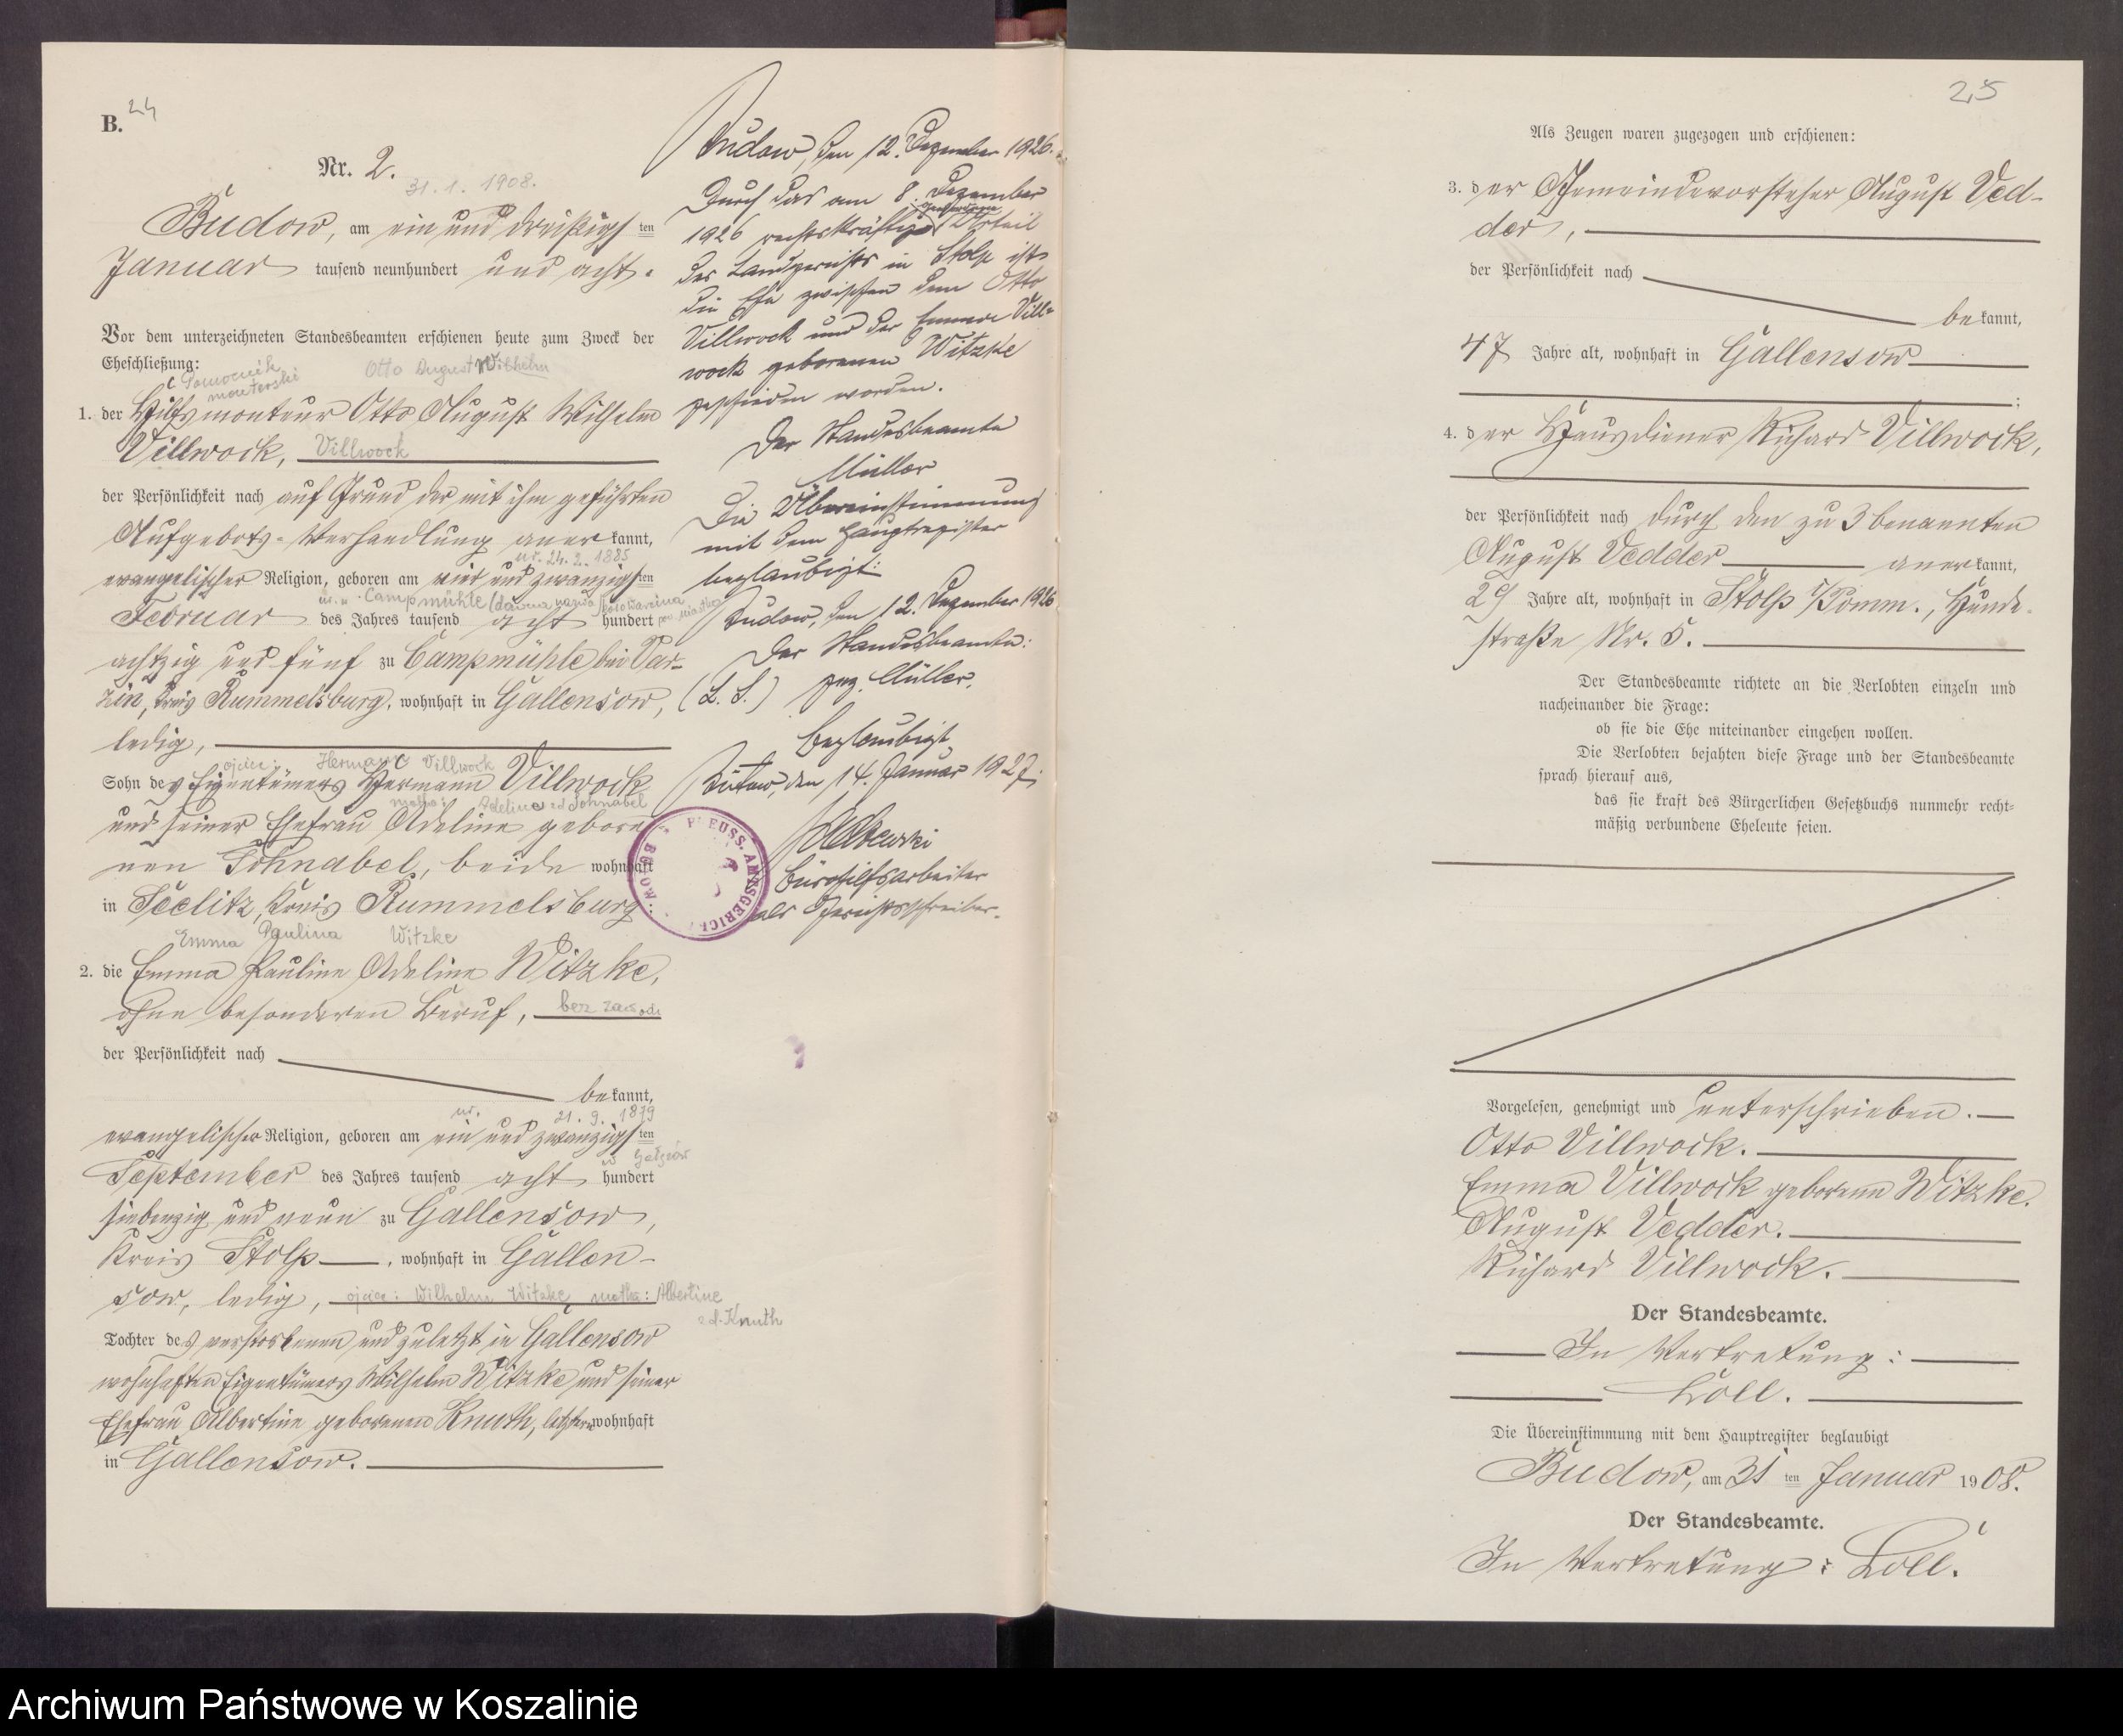 B. 24
Nr. 2.
31. 1. 1908.
Budow, am ein und dreißigs ten
Januar tausend neunhundert und acht.
Vor dem unterzeichneten Standesbeamten erschienen heute zum Zweck der
Eheschließung:
Otto August Wilhelm
Pomocnik
monterski
1. der Hilfsmonteur Otto August Wilhelm
Villwock, Villwock
der Persönlichkeit nach auf Grund der mit ihm geführten
Aufgebots-Verhandlung anerkannt,
ur. 24. 2. 1885
evangelischer Religion, geboren am vier und zwanzigs ten
ur. w Campmühle (dawna nazwa)
Februar des Jahres tausend acht hundert
achtzig und fünf zu Campmühle bei Var-
zin, Kreis Rummelsburg, wohnhaft in Gallensow,
ledig,
ojciec: Hermann Villwock
Sohn des Eigentümers Hermann Villwock
matka: Adeline zd Schnabel
und seiner Ehefrau Adeline gebore-
nen Schnabel, beide wohnhaft
in Seelitz, Kreis Rummelsburg
Emma Paulina Witzke
2. die Emma Pauline Adeline Witzke,
ohne besonderen Beruf, bez zawodu
der Persönlichkeit nach
bekannt,
ur. 21. 9. 1879
evangelischer Religion, geboren am ein und zwanzigs ten
September des Jahres tausend acht hundert
siebenzig und neun zu Gallensow,
Kreis Stolp, wohnhaft in Gallen-
sow, ledig, ojciec: Wilhelm Witzke, matka: Albertine
zd. Knuth
Tochter des verstorbenen und zuletzt in Gallensow
wohnhaften Eigentümers Wilhelm Witzke und seiner
Ehefrau Albertine geborenen Knuth, letztere wohnhaft
in Gallensow.
Budow, den 12. Dezember 1926.
Durch das am 8. Dezember
1926 rechtskräftig gewordene Urteil
des Landgerichts in Stolp ist
die Ehe zwischen dem Otto
Villwock und der Emma Vill-
wock geborenen Witzke
geschieden worden.
Der Standesbeamte
Müller
Die Übereinstimmung
mit dem Hauptregister
beglaubigt:
Budow, den 12. Dezember 1926
Der Standesbeamte:
(L. S.) gez. Müller.
Beglaubigt
Bütow, den 14. Januar 1927.
Bürohilfsarbeiter
als Gerichtsschreiber.
PREUSS. AMTSGERICHT
25
Als Zeugen waren zugezogen und erschienen:
3. der Gemeindevorsteher August Ved-
der,
der Persönlichkeit nach
bekannt,
47 Jahre alt, wohnhaft in Gallensow
;
4. der Hausdiener Richard Villwock,
der Persönlichkeit nach durch den zu 3 benannten
August Vedder anerkannt,
29 Jahre alt, wohnhaft in Stolp i/Pomm., Hunde-
straße Nr. 5.
Der Standesbeamte richtete an die Verlobten einzeln und
nacheinander die Frage:
ob sie die Ehe miteinander eingehen wollen.
Die Verlobten bejahten diese Frage und der Standesbeamte
sprach hierauf aus,
daß sie kraft des Bürgerlichen Gesetzbuchs nunmehr recht-
mäßig verbundene Eheleute seien.
Vorgelesen, genehmigt und unterschrieben.
Otto Villwock.
Emma Villwock geborene Witzke.
August Vedder.
Richard Villwock.
Der Standesbeamte.
In Vertretung:
Loll.
Die Übereinstimmung mit dem Hauptregister beglaubigt
Budow, am 31 ten Januar 1908.
Der Standesbeamte.
In Vertretung: Loll.
Archiwum Państwowe w Koszalinie